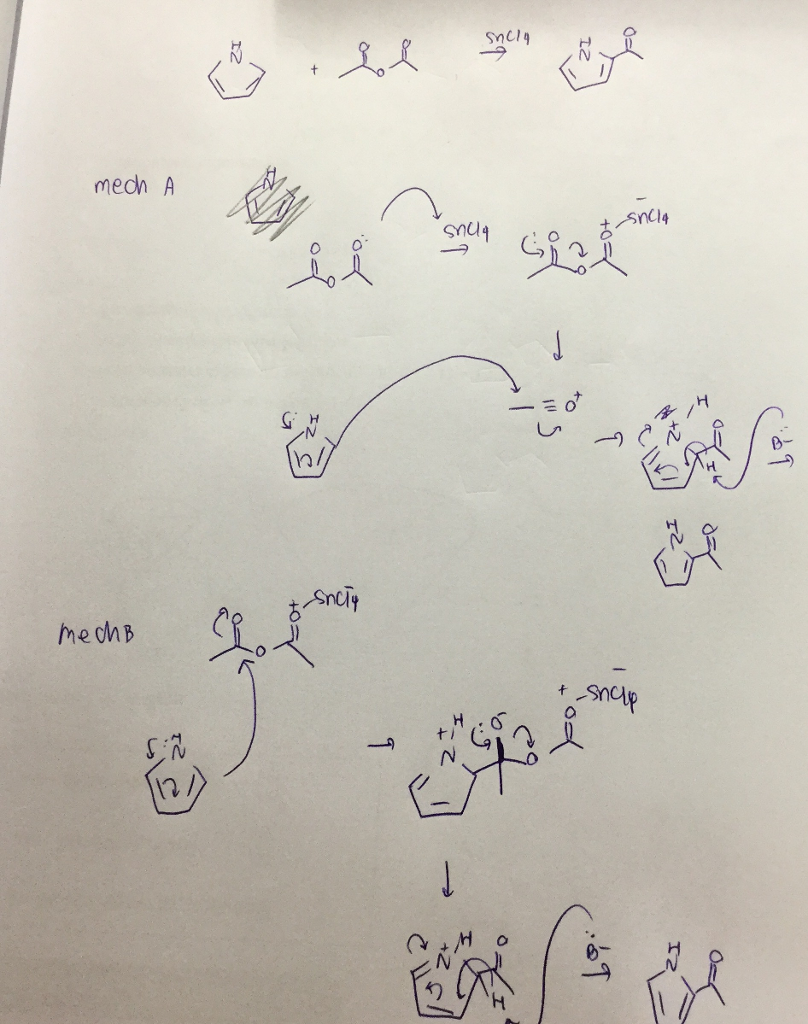 H N + O O O SnCl4 → H N O
mech A
O O O: SnCl4 → :O O O+ SnCl4 -
↓
: N H ≡ O+ → N+ H O H B:- →
H N O
mech B O O O+ SnCl4 -
:N H → +N H :O- O O + SnCl4 -
↓
N+ H O H :B- → H N O